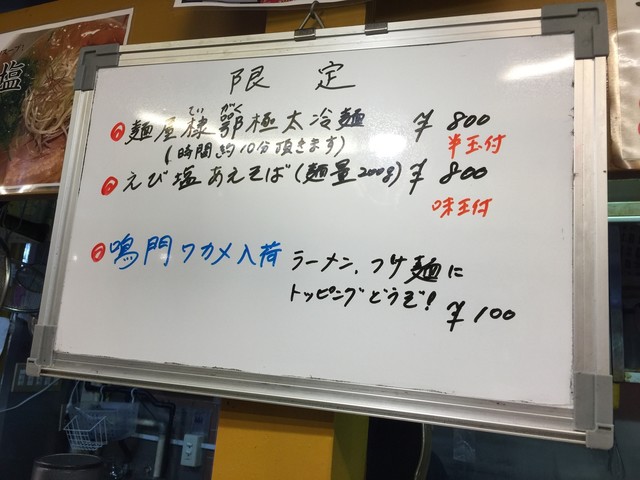 塩
限 定
ていがく
麺屋棣鄂極太冷麺 ¥800
(時間約10分頂きます) 半玉付
えび塩あえそば(麺量200g) ¥800
味玉付
鳴門ワカメ入荷 ラーメン、つけ麺に
トッピングどうぞ! ¥100